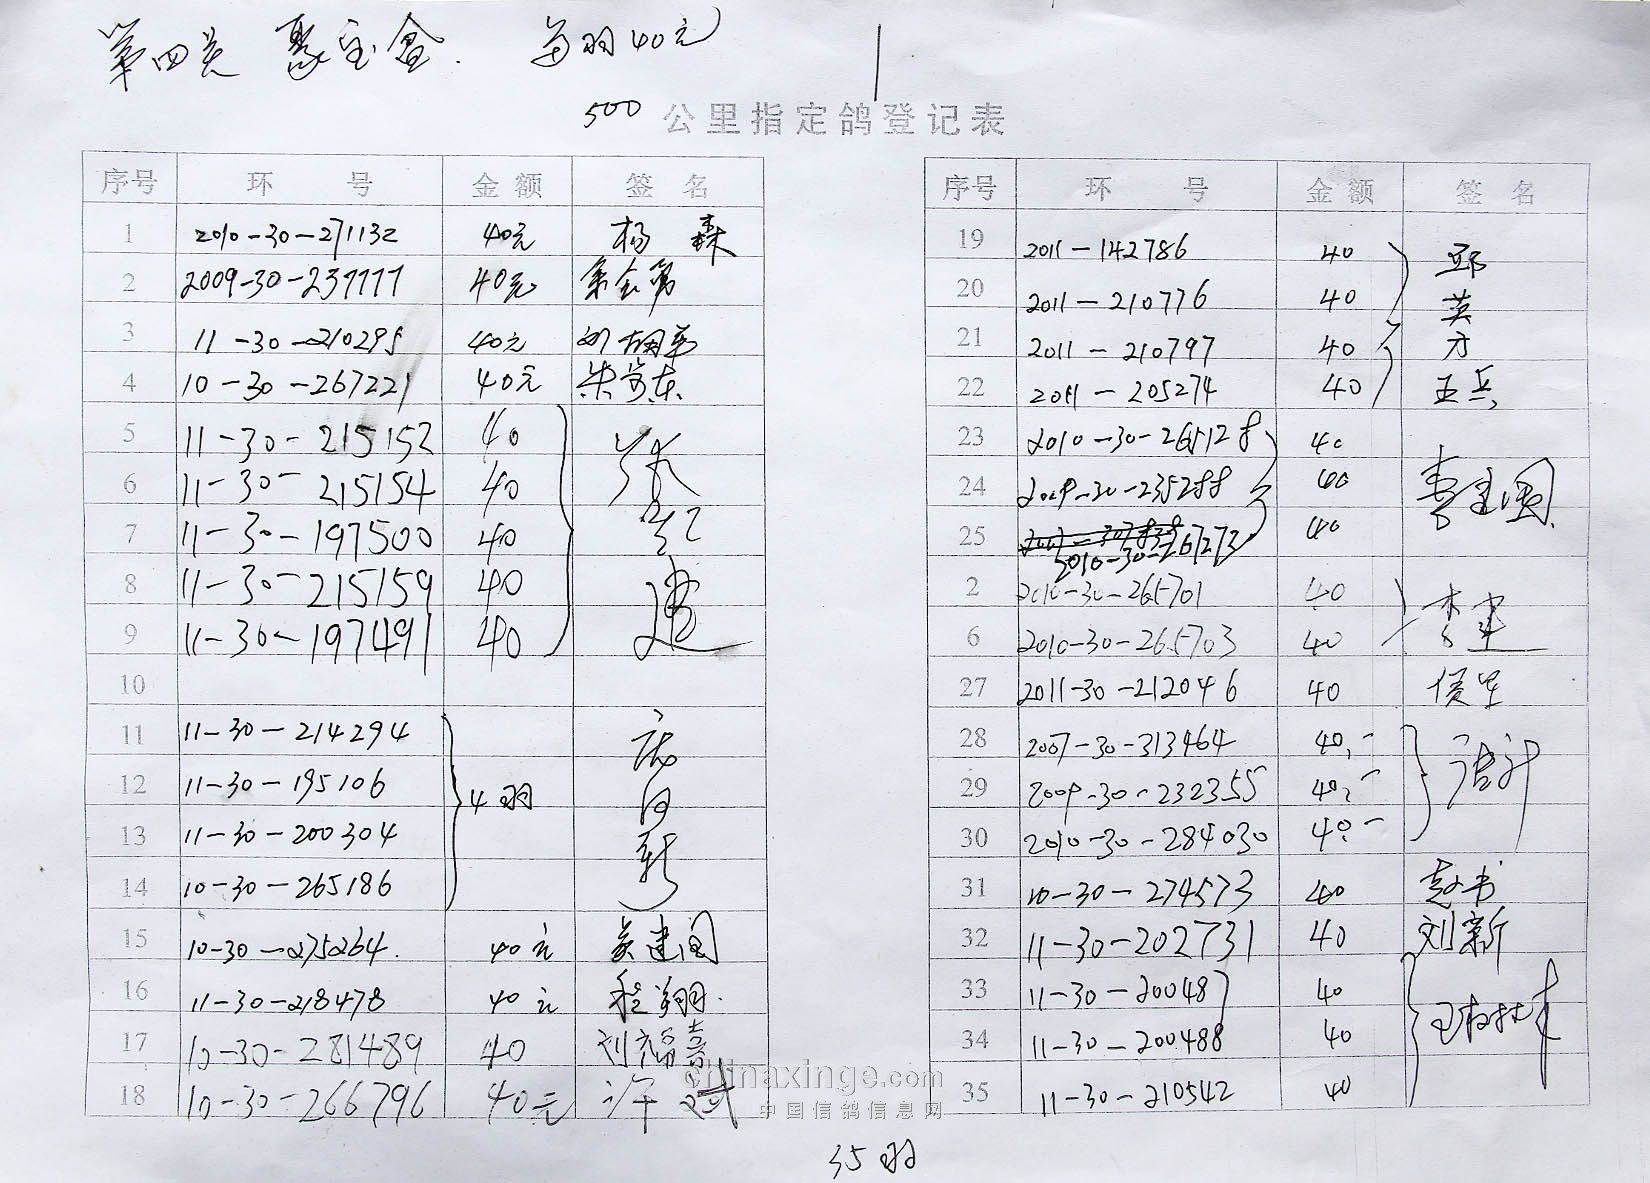 第四关 聚宝盆. 每羽40元
500 公里指定鸽登记表
序号 环 号 金 额 签 名
1 2010-30-271132 40元 杨 森
2 2009-30-237777 40元
3 11-30-210295 40元
4 10-30-267221 40元
5 11-30-215152 40
6 11-30-215154 40
7 11-30-197500 40
8 11-30-215159 40
9 11-30-197491 40
10
11 11-30-214294
12 11-30-195106 4羽
13 11-30-200304
14 10-30-265186
15 10-30-275264. 40元 吴建国
16 11-30-218478 40元 程翔.
17 10-30-281489 40 刘福喜
18 10-30-266796 40元 许斌
序号 环 号 金 额 签 名
19 2011-142786 40 邱
20 2011-210776 40 英
21 2011-210797 40 才
22 2011-205274 40 王兵
23 2010-30-265128 40
24 2009-30-235288 40 李建国
25 2010-30-267273 40
2 2010-30-265701 40 李建
6 2010-30-265703 40
27 2011-30-212046 40
28 2007-30-313464 40,-
29 2009-30-232355 40,-
30 2010-30-284030 40,-
31 10-30-274573 40 赵书
32 11-30-202731 40 刘新
33 11-30-200481 40
34 11-30-200488 40
35 11-30-210542 40
chinaxinge.com
中国信鸽信息网
35羽